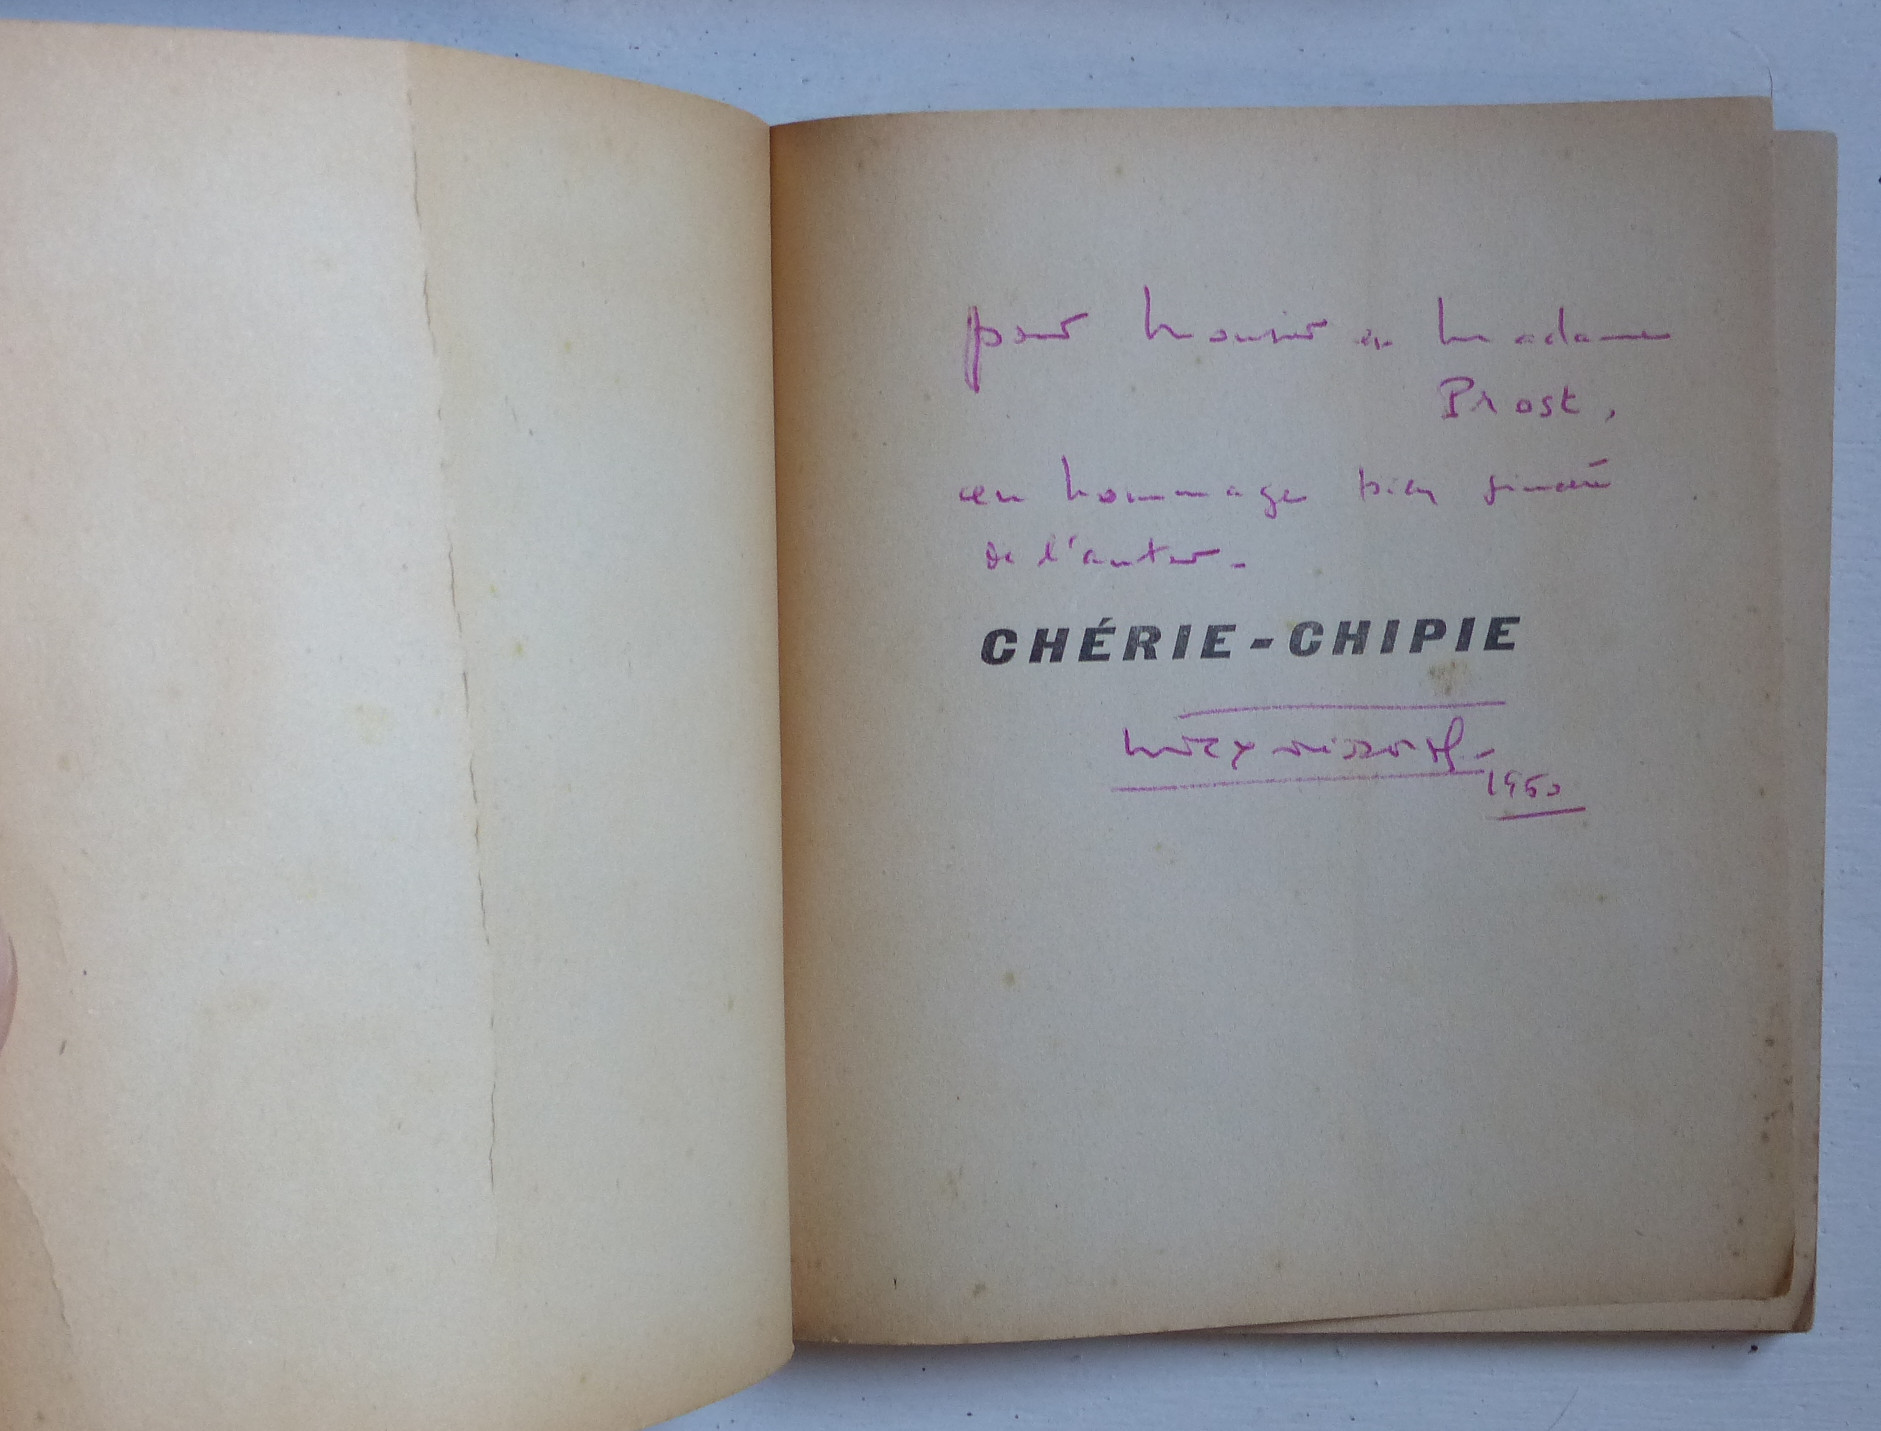 pour Monsieur et Madame
Prost,
en hommage bien sincère
de l'auteur.
CHÉRIE-CHIPIE
1950